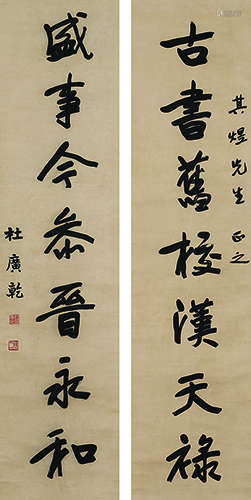 古書舊校漢天祿
其煜先生正之
盛事今參晉永和
杜廣乾